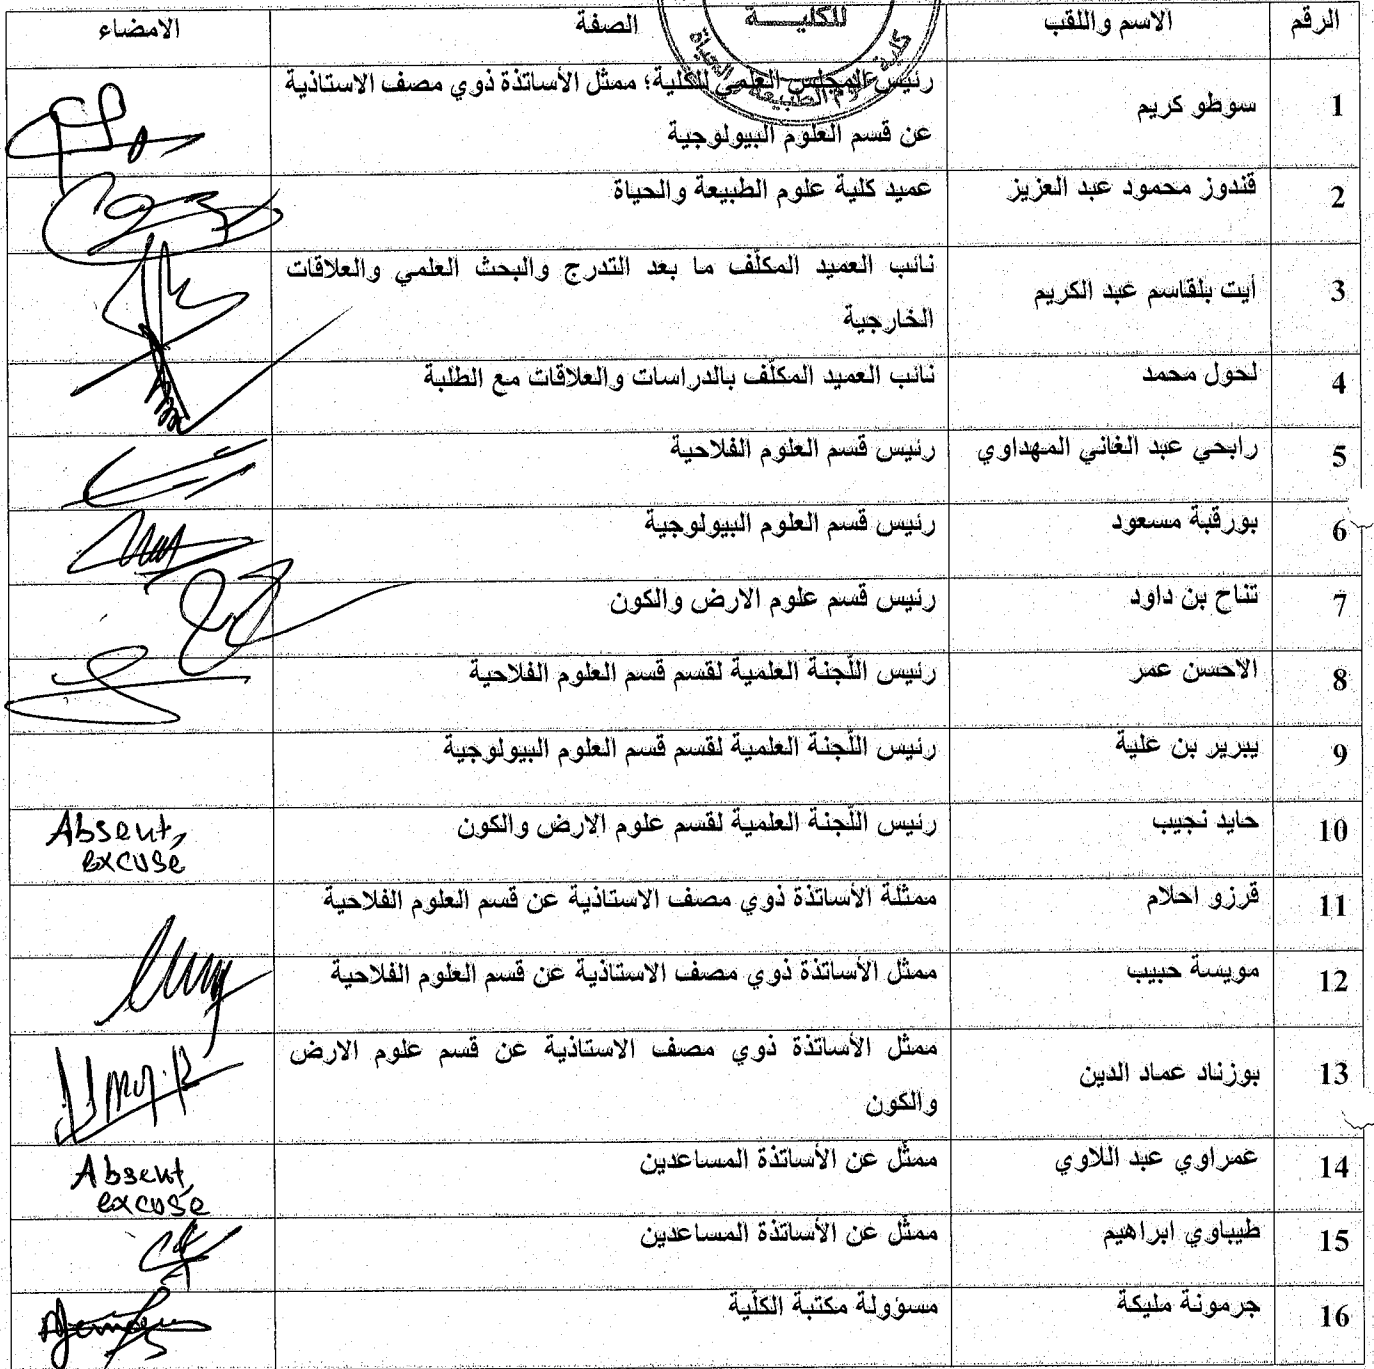 الرقم الاسم واللقب الصفة الامضاء
للكليـــة
كلية علوم الطبيعة والحياة
1 سوطو كريم رئيس المجلس العلمي للكلية؛ ممثل الأساتذة ذوي مصف الاستاذية
عن قسم العلوم البيولوجية
2 قندوز محمود عبد العزيز عميد كلية علوم الطبيعة والحياة
3 أيت بلقاسم عبد الكريم نائب العميد المكلّف ما بعد التدرج والبحث العلمي والعلاقات
الخارجية
4 لحول محمد نائب العميد المكلّف بالدراسات والعلاقات مع الطلبة
5 رابحي عبد الغاني المهداوي رئيس قسم العلوم الفلاحية
6 بورقبة مسعود رئيس قسم العلوم البيولوجية
7 تتاح بن داود رئيس قسم علوم الارض والكون
8 الاحسن عمر رئيس اللّجنة العلمية لقسم قسم العلوم الفلاحية
9 يبرير بن علية رئيس اللّجنة العلمية لقسم قسم العلوم البيولوجية
10 حايد نجيب رئيس اللّجنة العلمية لقسم علوم الارض والكون Absent,
excuse
11 قرزو احلام ممثلة الأساتذة ذوي مصف الاستاذية عن قسم العلوم الفلاحية
12 مويسة حبيب ممثل الأساتذة ذوي مصف الاستاذية عن قسم العلوم الفلاحية
13 بوزناد عماد الدين ممثل الأساتذة ذوي مصف الاستاذية عن قسم علوم الارض
والكون
14 عمراوي عبد اللاوي ممثّل عن الأساتذة المساعدين Absent,
excuse
15 طيباوي ابراهيم ممثّل عن الأساتذة المساعدين
16 جرمونة مليكة مسؤولة مكتبة الكلّية